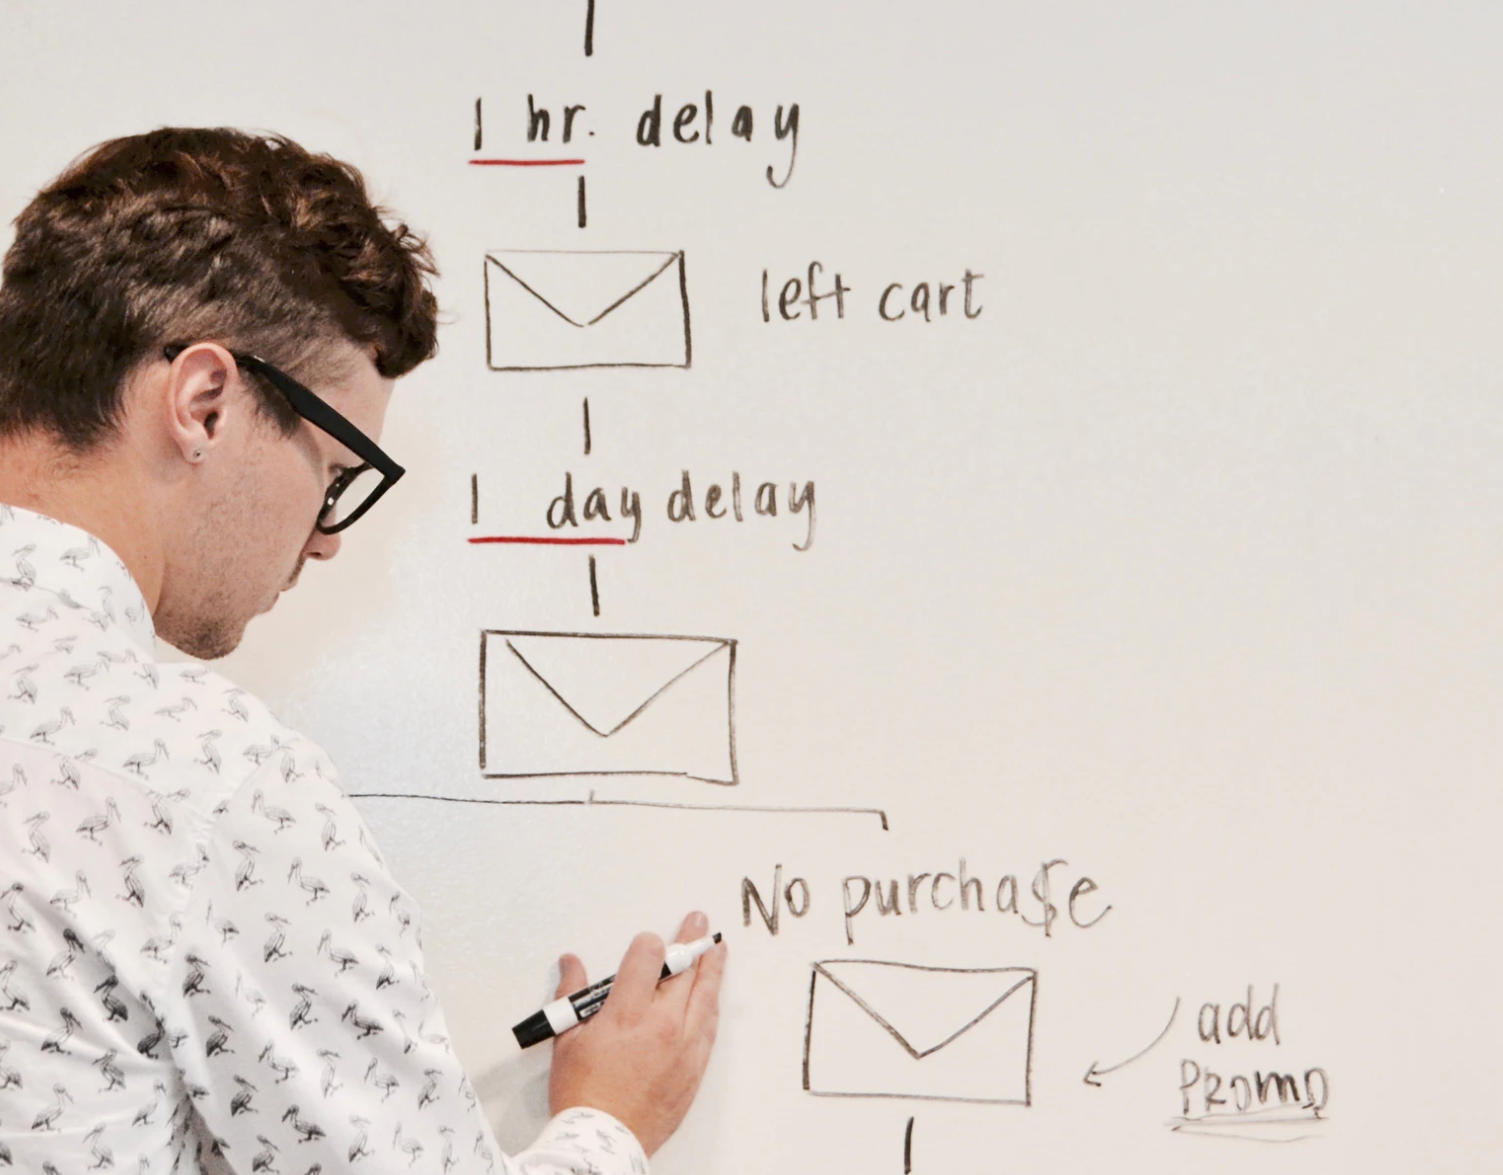 1 hr. delay
left cart
1 day delay
No purcha$e
add
PROMO